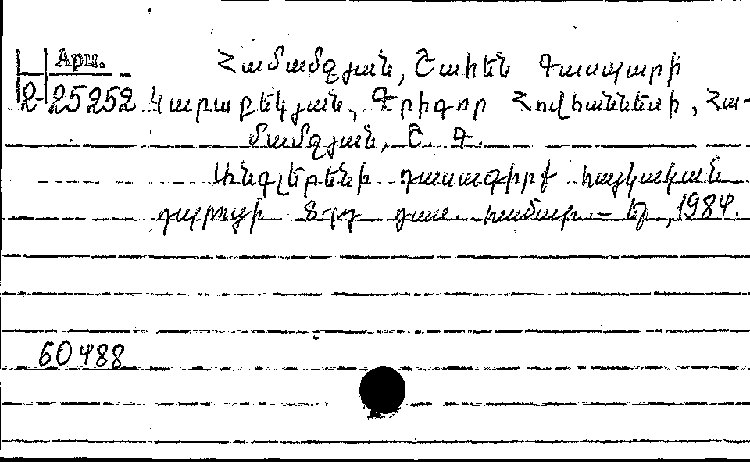 Арм. Համամջյան, Շահեն Գասպարի
2-25252 Կարաբեկյան, Գրիգոր Հովհաննեսի, Հա-
մամջյան, Շ. Գ.
Անգլերենի դասագիրք հայկական
դպրոցի 8-րդ դաս. համար. – Ե., 1984.
60488